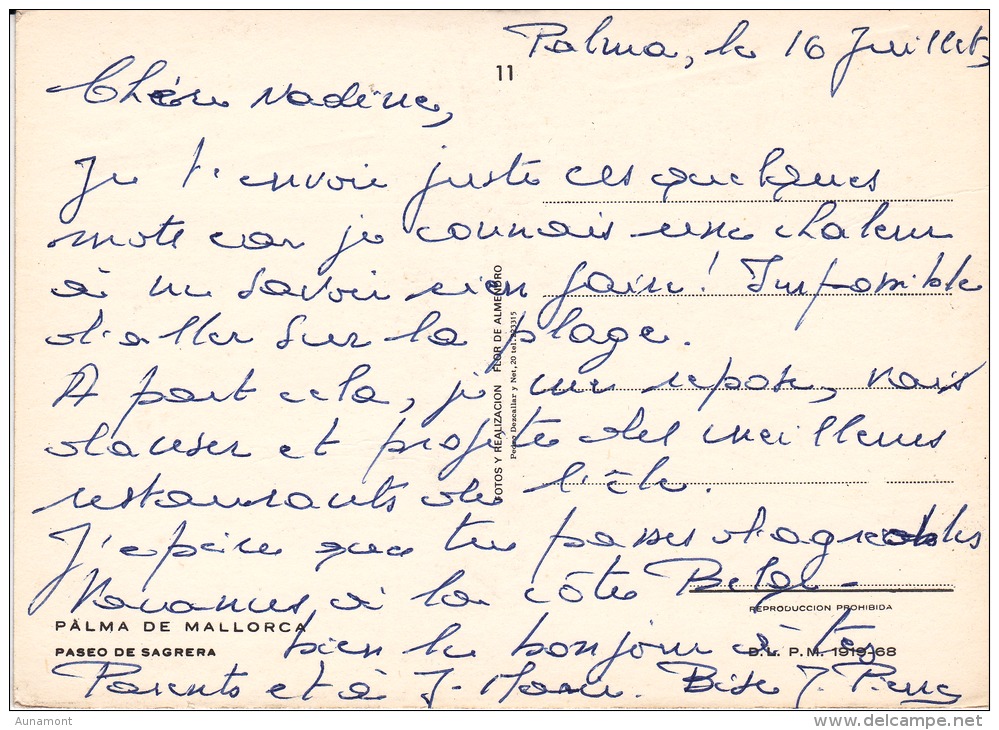 Palma, le 16 Juillet,
11
Chère Nadine,
Je t'envoie juste ces quelques
mots car je connais une chaleur
à ne savoir rien faire! Impossible
d'aller sur la plage.
A part cela, je me repose, vais
danser et profite des meilleurs
restaurants de l'île.
J'espère que tu passes d'agréables
Vacances, à la côte Belge -
bien le bonjour à tes
Parents et à J. Marc. Bise J. Pierre
FOTOS Y REALIZACION FLOR DE ALMENDRO
Pedro Dezcallar y Net, 20 tel. 223315
REPRODUCCION PROHIBIDA
PALMA DE MALLORCA
PASEO DE SAGRERA
D.L. P.M. 1919-68
Aunamont
delcampe.net